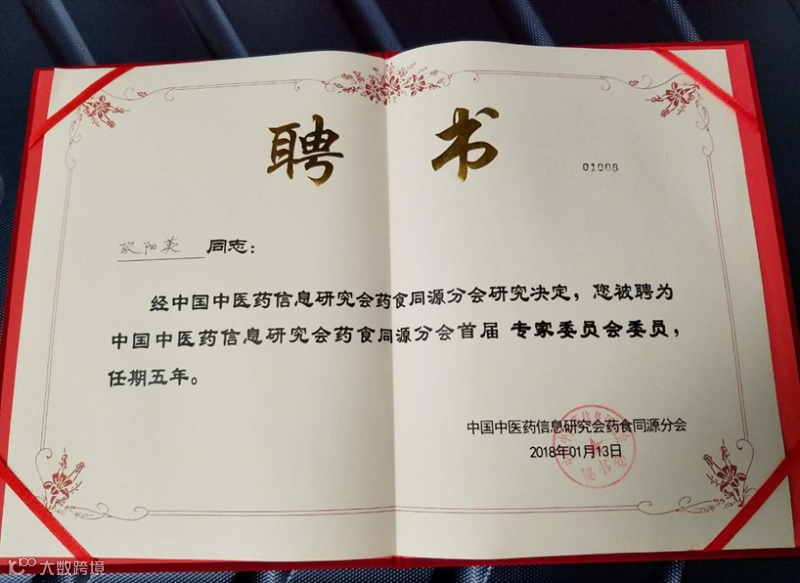 聘书
01008
欧阳英 同志：
经中国中医药信息研究会药食同源分会研究决定，您被聘为
中国中医药信息研究会药食同源分会首届 专家委员会委员，
任期五年。
中国中医药信息研究会药食同源分会
2018年01月13日
秘书处
大数跨境